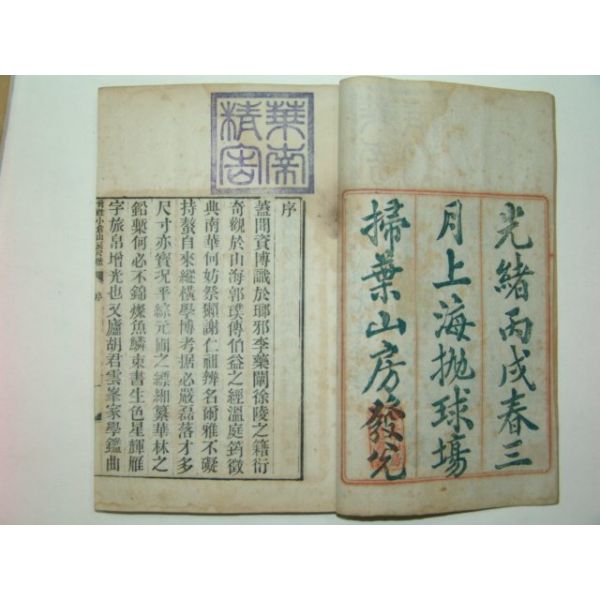 光緒丙戌春三
月上海抛球場
掃葉山房發兌
華南
精舍
序
蓋聞資博識於瑯邪李藥闡徐陵之籍衍
奇觀於山海郭璞傳伯益之經溫庭筠徵
典南華何妨祭獺謝仁祖辨名爾雅不礙
持螯自來縱橫學博考據必嚴磊落才多
尺寸亦寶況平綜元圃之縹緗纂華林之
鉛槧何必不錦燦魚鱗束書生色星輝雁
字旅帛增光也文廬胡君雲峯家學鑑曲
小倉山房
序